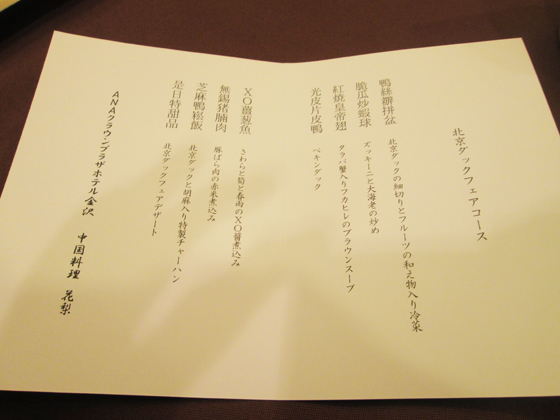 北京ダックフェアコース
鴨絲瓣拼盆
北京ダックの細切りとフルーツの和え物入り冷菜
脆瓜炒蝦球
ズッキーニと大海老の炒め
紅燒皇帝翅
タラバ蟹入りフカヒレのブラウンスープ
光皮片皮鴨
ペキンダック
XO醬葱魚
さわらと筍と春雨のXO醤煮込み
無錫猪腩肉
豚ばら肉の赤米煮込み
芝麻鴨崧飯
北京ダックと胡麻入り特製チャーハン
是日特甜品
北京ダックフェアデザート
ANAクラウンプラザホテル金沢 中国料理 花梨